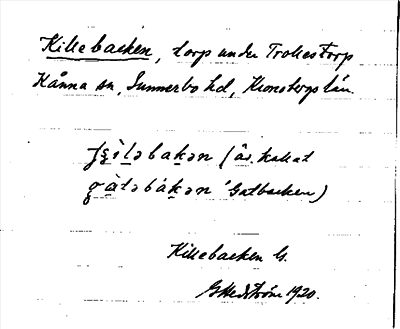 Killebacken, torp under Trollestorp
Kånna sn, Sunnerbo hd, Kronobergs län.
(äv. kallat
'Gatbacken)
Killebacken G.
G Hedström 1920.